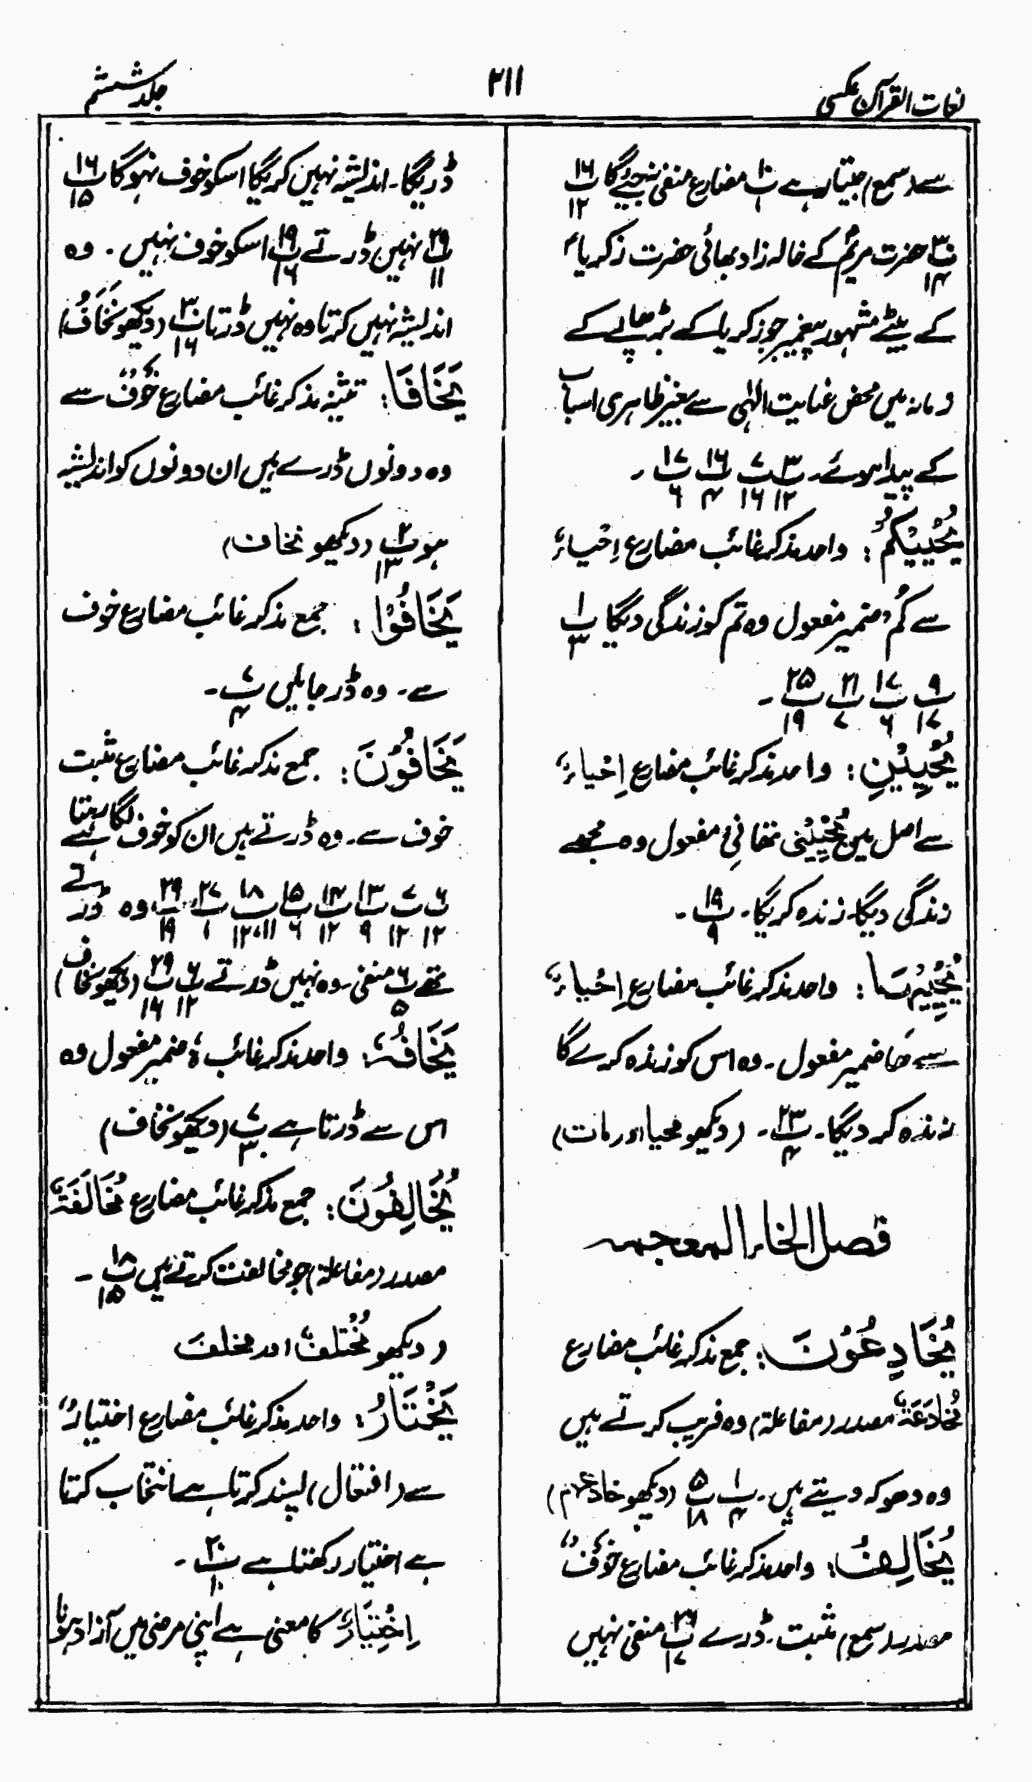 لغات القرآن عکسی
۲۱۱
جلد ششم
سے (سمع) جیتا رہے پ۱۰/۱ مضارع منفی نہ جیے گا پ۱۶/۱۲
پ۳۰/۱۲ حضرت مریم کے خالہ زاد بھائی حضرت زکریا
کے بیٹے مشہور پیغمبر جو زکریا کے بڑھاپے کے
زمانہ میں محض عنایت الٰہی سے بغیر ظاہری اسباب
کے پیدا ہوئے۔ پ۳/۱۲ پ۷/۱۶ پ۱۶/۴ پ۱۷/۶ ۔
یُحْیِیْکُمْ: واحد مذکر غائب مضارع اِحْیاءٌ
سے کُمْ ضمیر مفعول وہ تم کو زندگی دیگا پ۱/۳
پ۹/۱۷ پ۱۷/۶ پ۲۱/۷ پ۲۵/۱۹ ۔
یُحْیِیْنِ: واحد مذکر غائب مضارع اِحْیاءٌ
سے اصل میں یُحْیِیْنِی تھا نِیْ مفعول وہ مجھے
زندگی دیگا۔ زندہ کریگا۔ پ۱۹/۹ ۔
یُحْیِیْهَا: واحد مذکر غائب مضارع اِحْیاءٌ
سے هَا ضمیر مفعول ۔ وہ اس کو زندہ کرے گا
زندہ کر دیگا۔ پ۲۳/۴ ۔ (دیکھو محیا اور مات)
فصل الخاء المعجمہ
یُخَادِعُوْنَ: جمع مذکر غائب مضارع
مُخَادَعَةٌ مصدر (مفاعلۃ) وہ فریب کرتے ہیں
وہ دھوکہ دیتے ہیں۔ پ۱/۴ پ۵/۱۸ (دیکھو خادعھم)
یُخَالِفُ: واحد مذکر غائب مضارع خَوْفٌ
مصدر (سمع) مثبت۔ ڈرے پ۲۶/۱۷ منفی نہیں
ڈریگا۔ اندیشہ نہیں کریگا اسکو خوف نہوگا پ۱۶/۱۵
پ۲۹/۱۱ نہیں ڈرتے پ۱۹/۱۶ اسکو خوف نہیں ۔ وہ
اندیشہ نہیں کرتا وہ نہیں ڈرتا پ۳۰/۱۶ (دیکھو نَخَافُ)
یَخَافَا: تثنیہ مذکر غائب مضارع خَوْفٌ سے
وہ دونوں ڈرے ہیں ان دونوں کو اندیشہ
ہو پ۲/۱۳ (دیکھو نخاف)
یَخَافُوْا: جمع مذکر غائب مضارع خوف
سے۔ وہ ڈر جائیں پ۷/۴ ۔
یَخَافُوْنَ: جمع مذکر غائب مضارع مثبت
خوف سے۔ وہ ڈرتے ہیں ان کو خوف لگا رہتا ہے
پ۶/۱۲ پ۷/۱۲ پ۱۳/۹ پ۱۴/۱۲ پ۱۵/۶ پ۱۸/۱۱،۱۲ پ۲۷/۱ پ۲۹/۱۹ وہ ڈرتے
تھے پ۶/۵ منفی۔ وہ نہیں ڈرتے پ۶/۱۲ پ۲۹/۱۶ (دیکھو نخاف)
یَخَافُہٗ: واحد مذکر غائب ہٗ ضمیر مفعول وہ
اس سے ڈرتا ہے پ۷/۳ (دیکھو نخاف)
یُخَالِفُوْنَ: جمع مذکر غائب مضارع مُخَالَفَةٌ
مصدر (مفاعلۃ) جو مخالفت کرتے ہیں پ۱۸/۱۵ ۔
(دیکھو مُخْتَلِفٌ اور مخلف
یَخْتَارُ: واحد مذکر غائب مضارع اختیارٌ
سے (افتعال) پسند کرتا ہے انتخاب کرتا
ہے اختیار رکھتا ہے پ۲۰/۱۰ ۔
اِخْتِیَارٌ کا معنی ہے اپنی مرضی میں آزاد ہونا